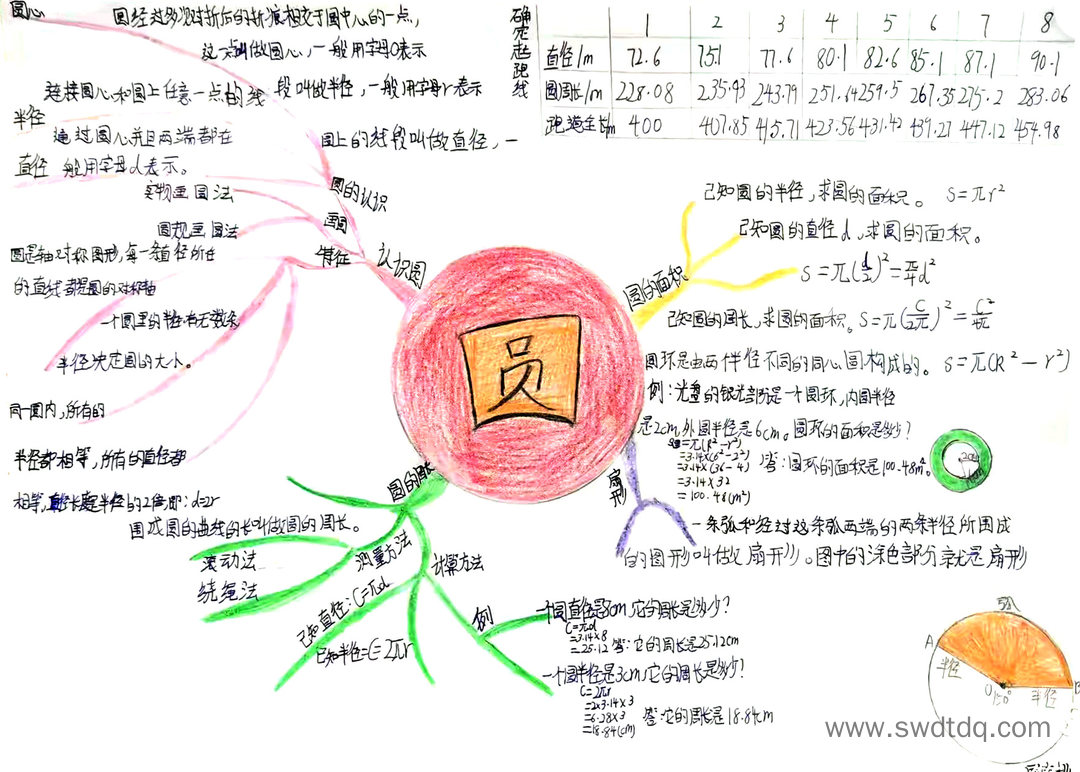 圆心
圆经过多次对折后的折痕相交于圆中心的一点，
这一点叫做圆心，一般用字母O表示
连接圆心和圆上任意一点的线 段叫做半径，一般用字母r表示
半径
通过圆心并且两端都在 圆上的线段叫做直径，一
直径 般用字母d表示。
圆的认识
实物画圆法
画圆
圆规画圆法
认识圆
特征
圆是轴对称图形，每一条直径所在
的直线都是圆的对称轴
一个圆里的半径有无数条
半径决定圆的大小。
同一圆内，所有的
半径都相等，所有的直径都
相等，直径长度是半径的2倍即：d=2r
确定起跑线
1 2 3 4 5 6 7 8
直径/m 72.6 75.1 77.6 80.1 82.6 85.1 87.1 90.1
圆周长/m 228.08 235.93 243.79 251.64 259.5 267.35 275.2 283.06
跑道全长/m 400 407.85 415.71 423.56 431.42 439.27 447.12 454.98
圆
圆的面积
已知圆的半径，求圆的面积。 S=πr²
已知圆的直径d，求圆的面积。
S=π(d/2)²=π/4d²
已知圆的周长，求圆的面积。S=π(C/2π)²=C²/4π
圆环是由两个半径不同的同心圆构成的。 S=π(R²-r²)
例：光盘的银光部分是一个圆环，内圆半径
是2cm，外圆半径是6cm。圆环的面积是多少？
=π(R²-r²)
=3.14×(6²-2²)
=3.14×(36-4) 答：圆环的面积是100.48m²。
=3.14×32
=100.48(m²)
扇形
一条弧和经过这条弧两端的两条半径所围成
的图形叫做扇形。图中的涂色部分就是扇形
弧
A
半径
O
半径
B
圆的周长
围成圆的曲线的长叫做圆的周长。
测量方法
滚动法
绕绳法
计算方法
已知直径：C=πd
已知半径=C=2πr
例
一个圆直径是8cm，它的周长是多少？
C=πd
=3.14×8
=25.12 答：它的周长是25.12cm
一个圆半径是3cm，它的周长是多少？
C=2πr
=2×3.14×3
=6.28×3 答：它的周长是18.84cm
=18.84(cm)
www.swdtdq.com